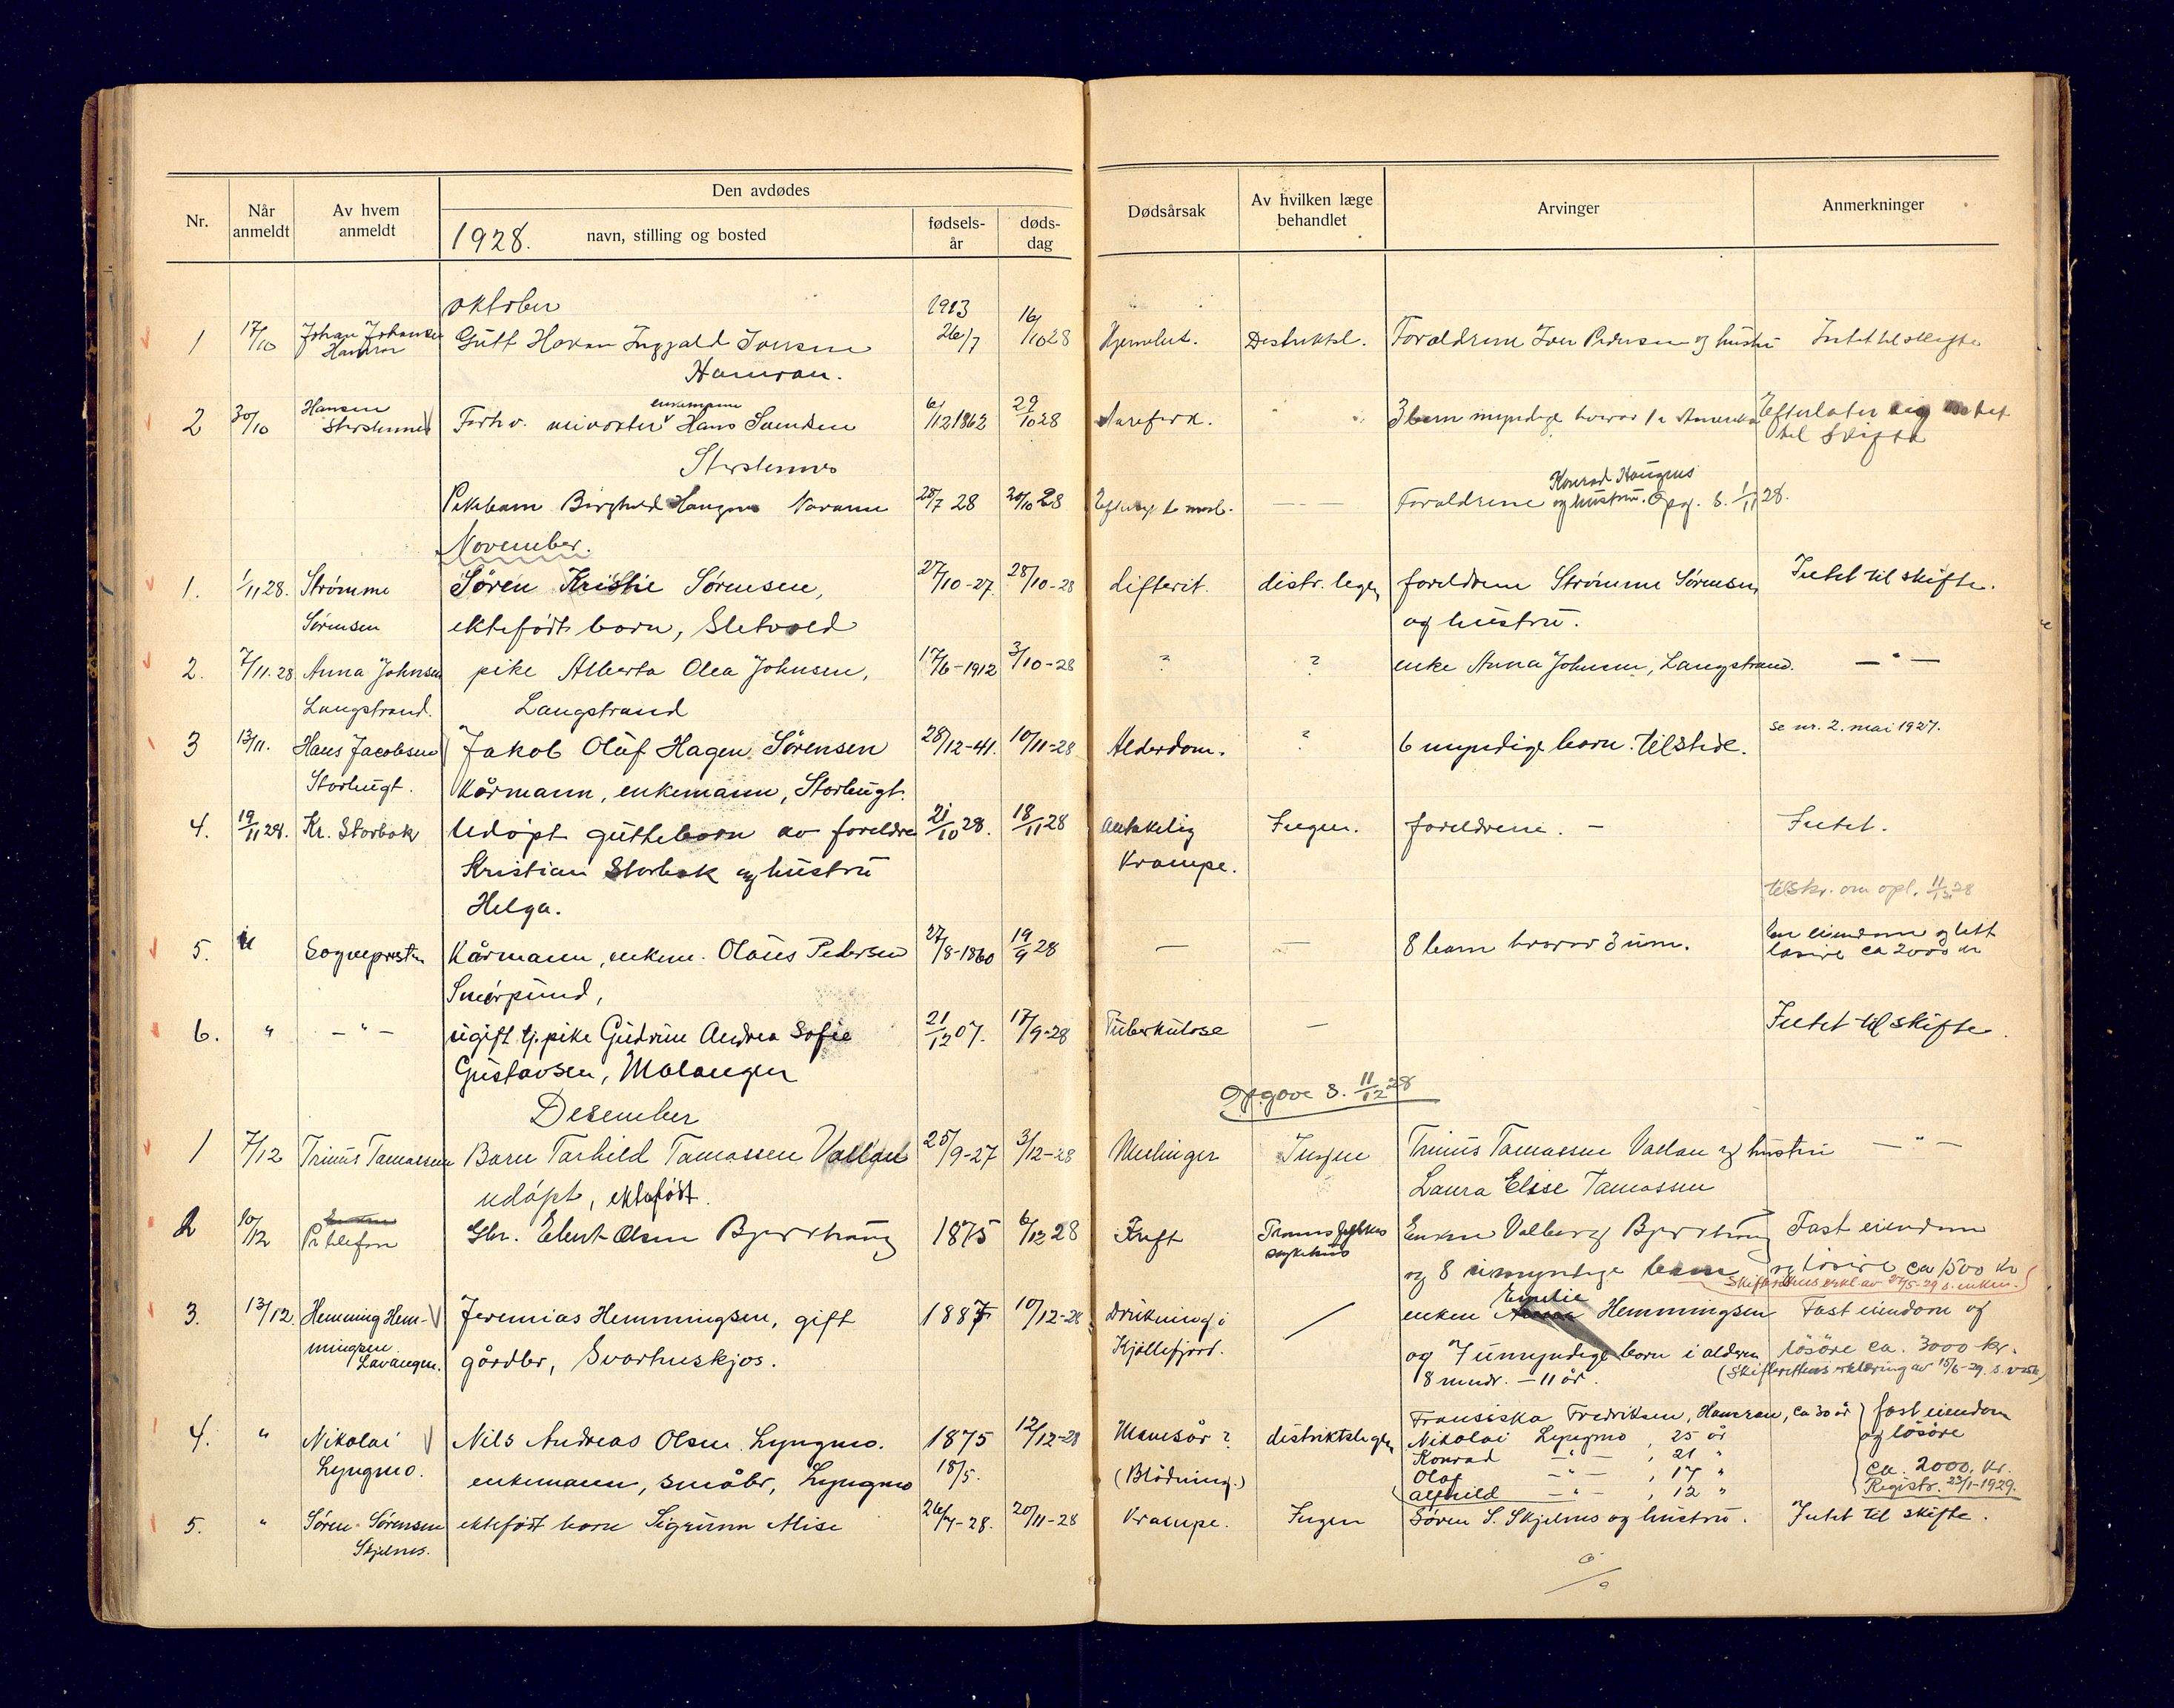 Nr.
Når anmeldt
Av hvem anmeldt
Den avdødes
1928. navn, stilling og bosted
fødsels-år
døds-dag
Dødsårsak
Av hvilken læge behandlet
Arvinger
Anmerkninger
oktober
1 17/10 Johan Johansen Gutt Hakan Ingvald Iversen 1913 26/7 16/10 28 Distriktsl. Foraldrene Iver Pedersen og hustru Intet til skifte
Hamran.
2 30/10 Hansen Forhv. enkemann Hans Svendsen 6/12 1862 29/10 28 3 barn myndige hvorav 1 i Amerika Efterlater sig intet
til skifte
Pikebarn Borghild Haugnes 28/7 28 20/10 28 Foraldrene Konrad Haugnes og hustru. Opg. s. 1/11 28.
November.
1. 1/11 28. Strømme Søren Kristie Sørensen, 27/10-27. 28/10-28 difterit. distr. legen foreldrene Strømme Sørensen Intet til skifte.
Sørensen ektefødt barn, Sletvold og hustru.
2. 7/11.28 Anna Johnsen pike Alberta Olea Johnsen, 17/6-1912 3/10-28 ? ? enke Anna Johnsen, Langstrand. — " —
Langstrand. Langstrand
3 13/11. Hans Jacobsen Jakob Oluf Hagen Sørensen 28/12-41. 10/11-28 Alderdom. ? 6 myndige barn. tilstede. se nr. 2. mai 1927.
Storbugt. Kårmann, enkemann, Storbugt.
4. 19/11 28. Kr. Storbak Udøpt guttebarn av foreldre 21/10 28. 18/11 28 Ingen. foreldrene. – Intet.
Kristian Storbak og hustru Krampe.
Helga.
tilskr. om opl.
5. " Sogneprsten Kårmann, enkem. Olaus Pedersen 27/8-1860 19/9 28 — — 8 barn hvorav 3 um. en eiendom og litt
løsøre ca 2000 kr
6. " — " — ugift tj. pike Gudrun Andrea Sofie 21/12 07. 17/9-28 Tuberkulose — Intet til skifte.
Gustavsen, Malangen
Opgave s. 11/12 28
Desember
1 7/12 Trinus Tamassen Barn Tarhild Tamassen Vallan 25/9-27 3/12-28 Ingen Trinus Tamassen Vallan og hustru — " —
udøpt, ektefødt. Laura Elise Tamassen
2 10/12 Pr telefon Gbr. Elert Olsen 1875 6/12 28 Kreft Troms fylkes sykehus Enken Valborg Fast eiendom
og 8 umyndige barn og løsøre ca 1500 kr
Skifterettens erkl. av 27/5-29 s. enken.
3. 13/12. Hemming Hem- Jeremias Hemmingsen, gift 1887 10/12-28 Drukning i / enken Emelie Hemmingsen Fast eiendom og
mingsen Lavangen. gårdbr, Svarhuskjos. Kjøllefjord. og 7 umyndige barn i alderen løsøre ca. 3000 kr.
8 mndr. – 11 år. (Skifterettens erklering av 15/6-29.
4. " Nikolai Nils Andreas Olsen Lyngmo. 1875 12/12-28 Mavesår? distriktslegen Fransiska Fredriksen, Hamran, ca 30 år fast eiendom
Lyngmo. enkemann, småbr, Lyngmo 18/5. (Blødning.) Nikolai Lyngmo, 25 år og løsøre
Konrad — " —, 21 "
Olaf — " —, 17 " ca. 2000. kr.
Alfhild — " —, 12 " Registr. 23/1-1929.
5. " Søren Sørensen ektefødt barn Sigrunn Alise 26/7-28. 20/11-28 Krampe. Ingen Søren S. Skjelnes og hustru. Intet til skifte.
Skjelnes.